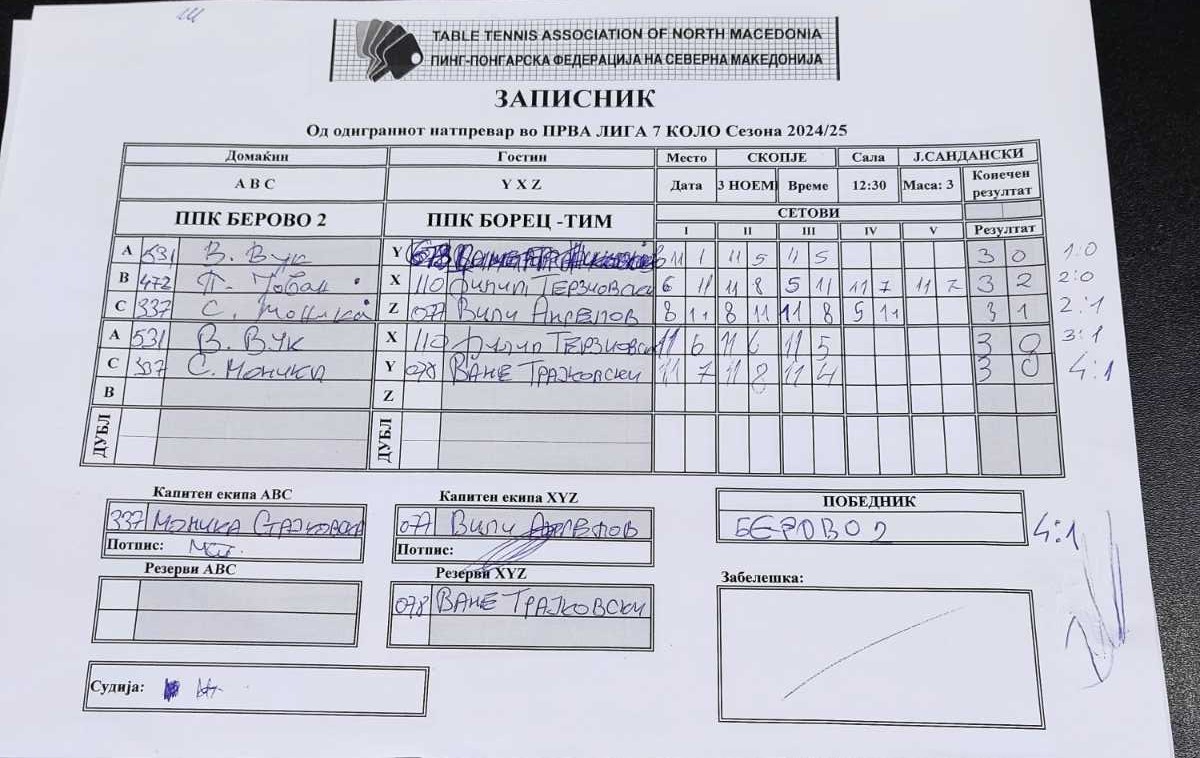 TABLE TENNIS ASSOCIATION OF NORTH MACEDONIA
ПИНГ-ПОНГАРСКА ФЕДЕРАЦИЈА НА СЕВЕРНА МАКЕДОНИЈА
ЗАПИСНИК
Од одиграниот натпревар во ПРВА ЛИГА 7 КОЛО Сезона 2024/25
Домаќин Гостин Место СКОПЈЕ Сала Ј.САНДАНСКИ
A B C Y X Z Дата 3 НОЕМ Време 12:30 Маса: 3 Конечен резултат
ППК БЕРОВО 2 ППК БОРЕЦ -ТИМ СЕТОВИ
I II III IV V Резултат
A 531 В. Вук Y 11 1 11 5 11 5 3 0 1:0
B 472 X 110 Филип ТЕРЗИОВСКИ 6 11 11 8 5 11 11 7 11 7 3 2 2:0
C 337 С. Моника Z 077 Вили Ангелов 8 11 8 11 11 8 5 11 3 1 2:1
A 531 В. Вук X 110 Филип ТЕРЗИОВСКИ 11 6 11 6 11 5 3 0 3:1
C 337 С. Моника Y 078 ВАНЕ ТРАЈКОВСКИ 11 7 11 8 11 4 3 0 4:1
B Z
ДУБЛ ДУБЛ
Капитен екипа ABC Капитен екипа XYZ ПОБЕДНИК
337 МОНИКА СТАЈКОВСКА 077 Вили Ангелов БЕРОВО 2 4:1
Потпис: Потпис:
Резерви ABC Резерви XYZ Забелешка:
078 ВАНЕ ТРАЈКОВСКИ
Судија: